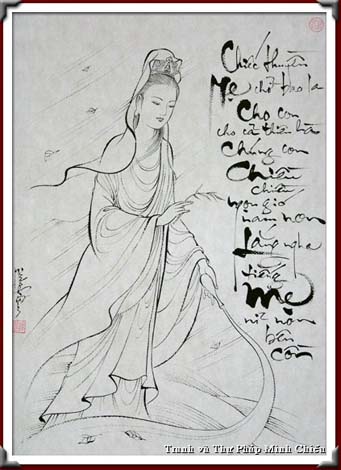 Chiếc thuyền
Mẹ chở bao la
Cho con
cho cả thiên hà
Chúng con
Chiều
chiều
ngọn gió
nam non
Lắng nghe
tiếng
Mẹ
nỉ non
bên
cồn
Tranh và Thư Pháp Minh Chiếu